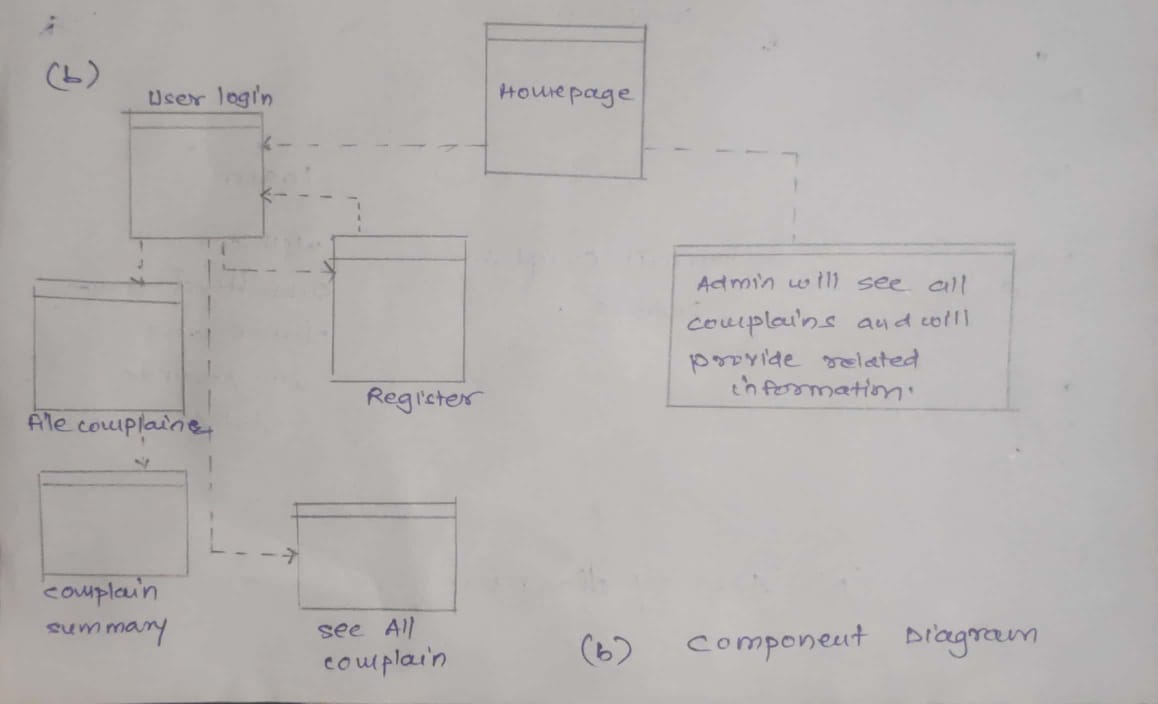 (b)
User login
Homepage
Admin will see all
complains and will
provide related
information.
Register
File complaine
complain
summary
see All
complain
(b) Component Diagram